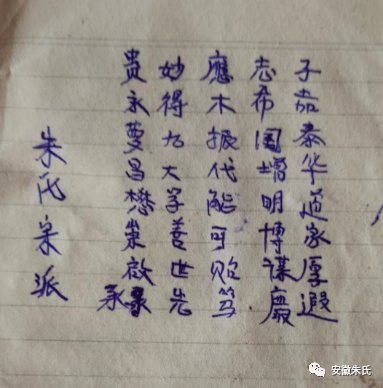 子嘉泰华道家厚遐
志希国增明博谋
應木振代能可贻笃
妙得九大学善世先
贵永蔓昌懋荣啟承
朱氏宗派
安徽朱氏